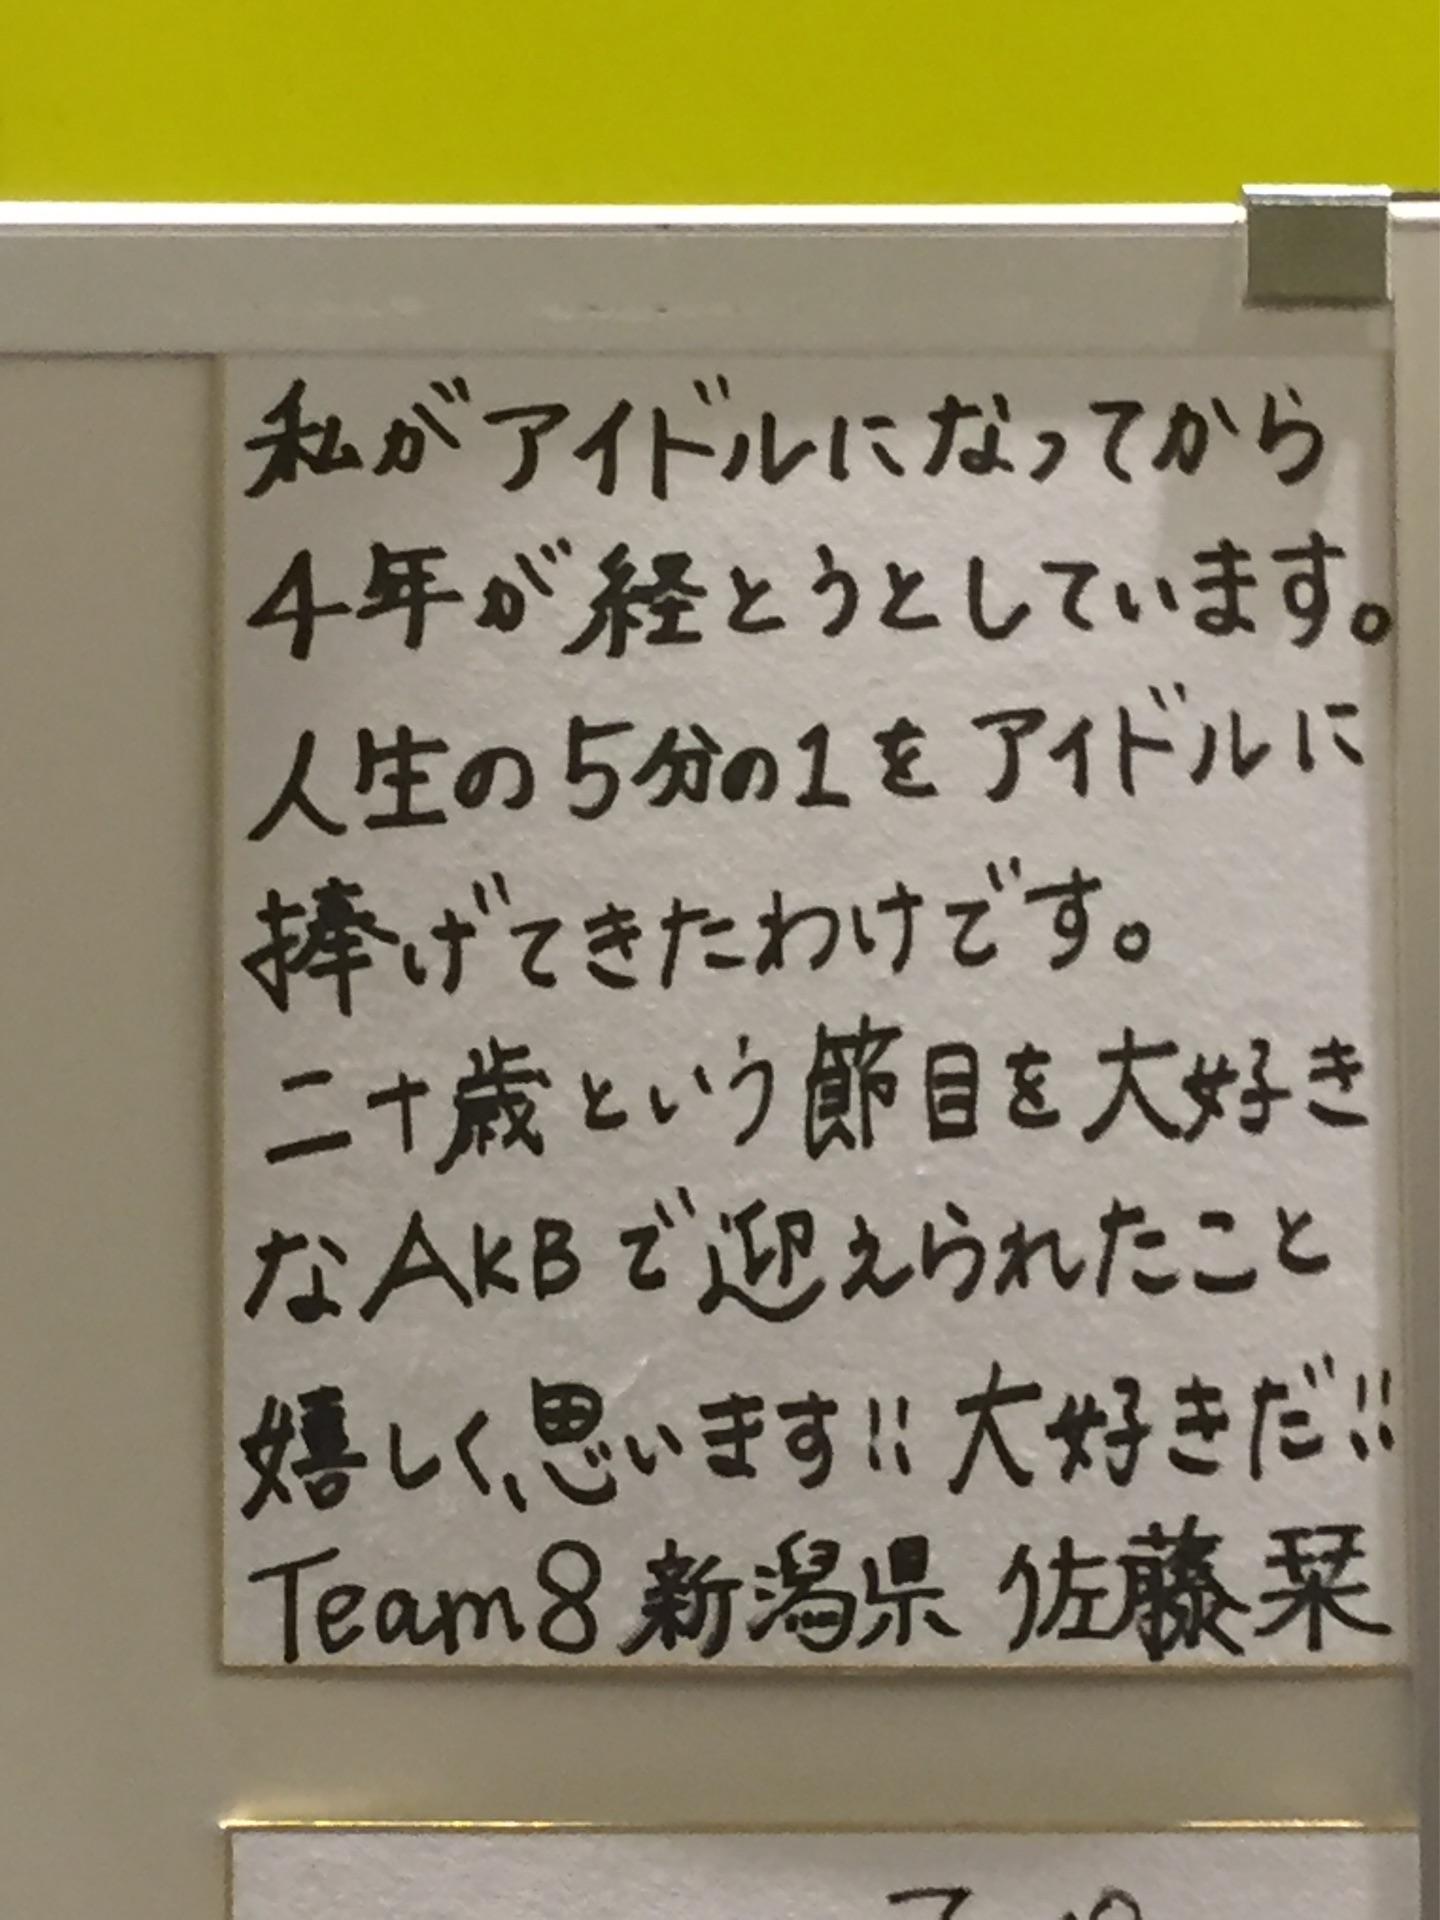 私がアイドルになってから
4年が経とうとしています。
人生の5分の1をアイドルに
捧げてきたわけです。
二十歳という節目を大好き
なAKBで迎えられたこと
嬉しく、思います!! 大好きだ!!
Team8 新潟県 佐藤栞